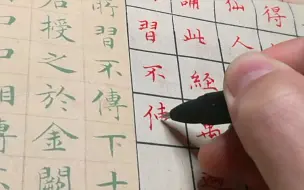 得
仙人
誦此經萬
習不
時習不傳下士
君授之於金闕
口相傳